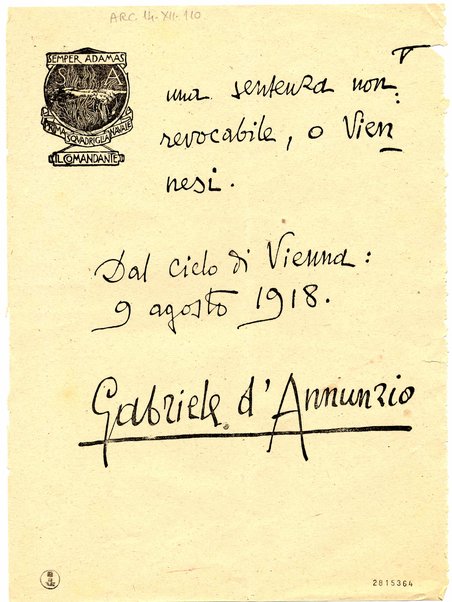 ARC. 14-XII-110
V
SEMPER ADAMAS
S A
PRIMA SQUADRIGLIA NAVALE
IL COMANDANTE
una sentenza non
revocabile, o Vien-
nesi.
Dal cielo di Vienna:
9 agosto 1918.
Gabriele d'Annunzio
2815364